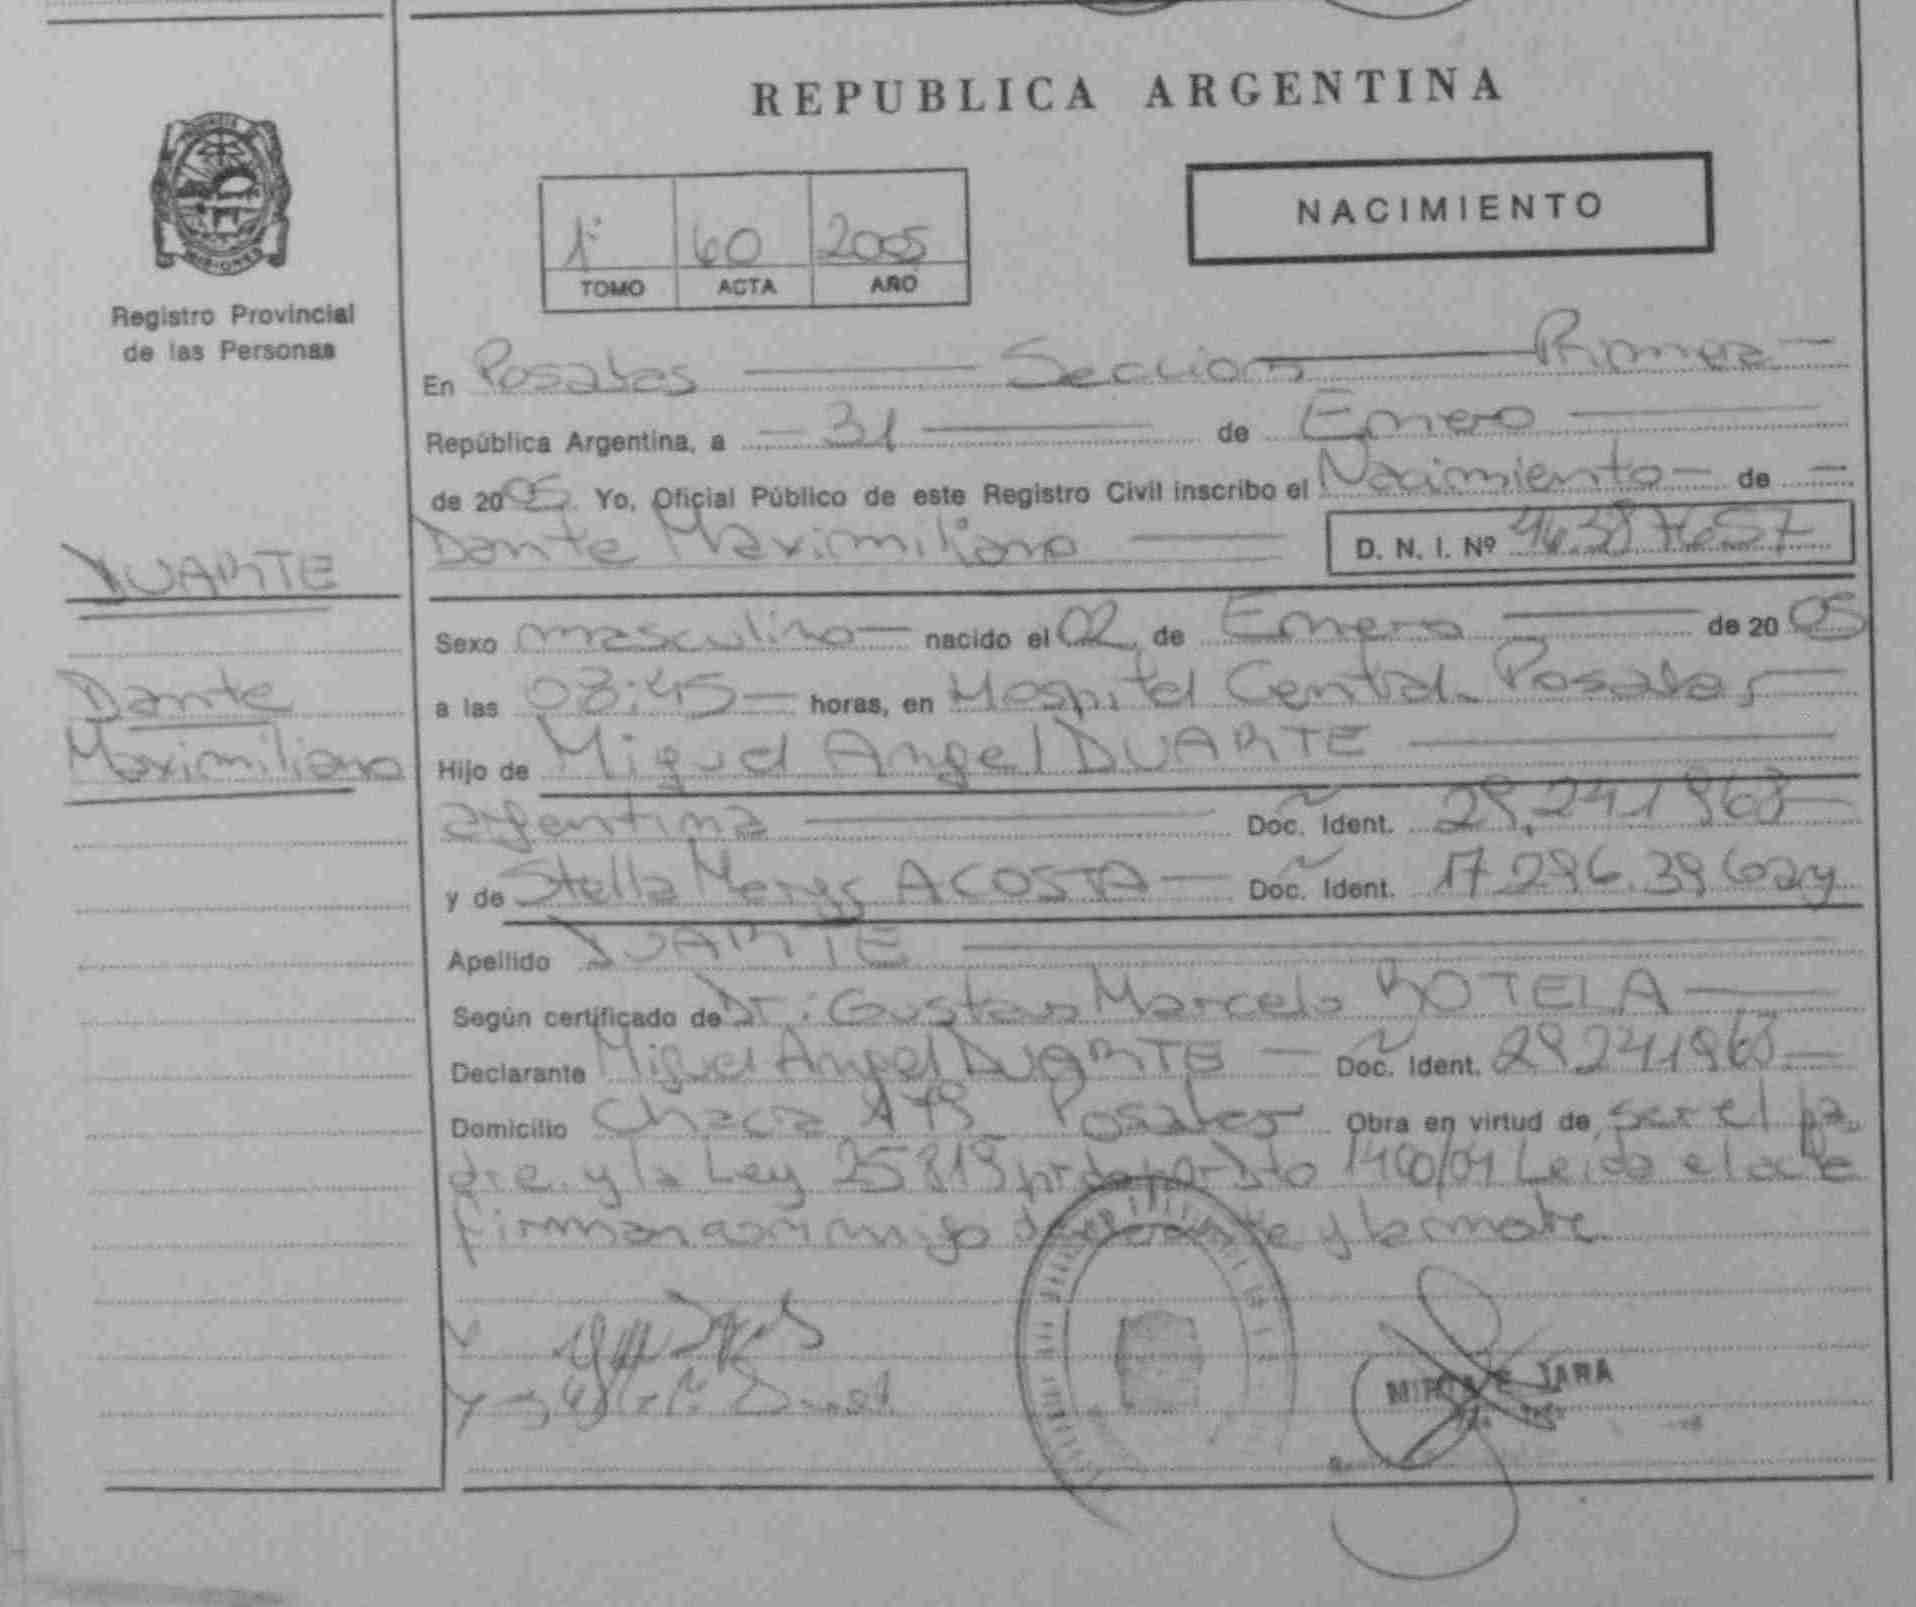 REPUBLICA ARGENTINA
PROVINCIA DE
MISIONES
Registro Provincial
de las Personas
NACIMIENTO
1º 60 2005
TOMO ACTA AÑO
En Posadas Seccion Primera
República Argentina, a 31 de Enero
de 2005 Yo, Oficial Público de este Registro Civil inscribo el Nacimiento de
Dante Maximiliano D. N. I. Nº
DUARTE
Dante
Maximiliano
Sexo masculino nacido el 02 de Enero de 2005
a las horas, en Hospital Central Posadas
Hijo de Miguel Angel DUARTE
argentina Doc. Ident.
y de Stella Merys ACOSTA Doc. Ident. 17.296.39
Apellido DUARTE
Según certificado de Dr: Gustavo Marcelo BOTELA
Declarante Miguel Angel DUARTE Doc. Ident.
Domicilio Chacra Posadas Obra en virtud de ser el pa
dre y la Ley 25819 Leida el acta
firman conmigo declarante y la madre
MIRTA E JARA